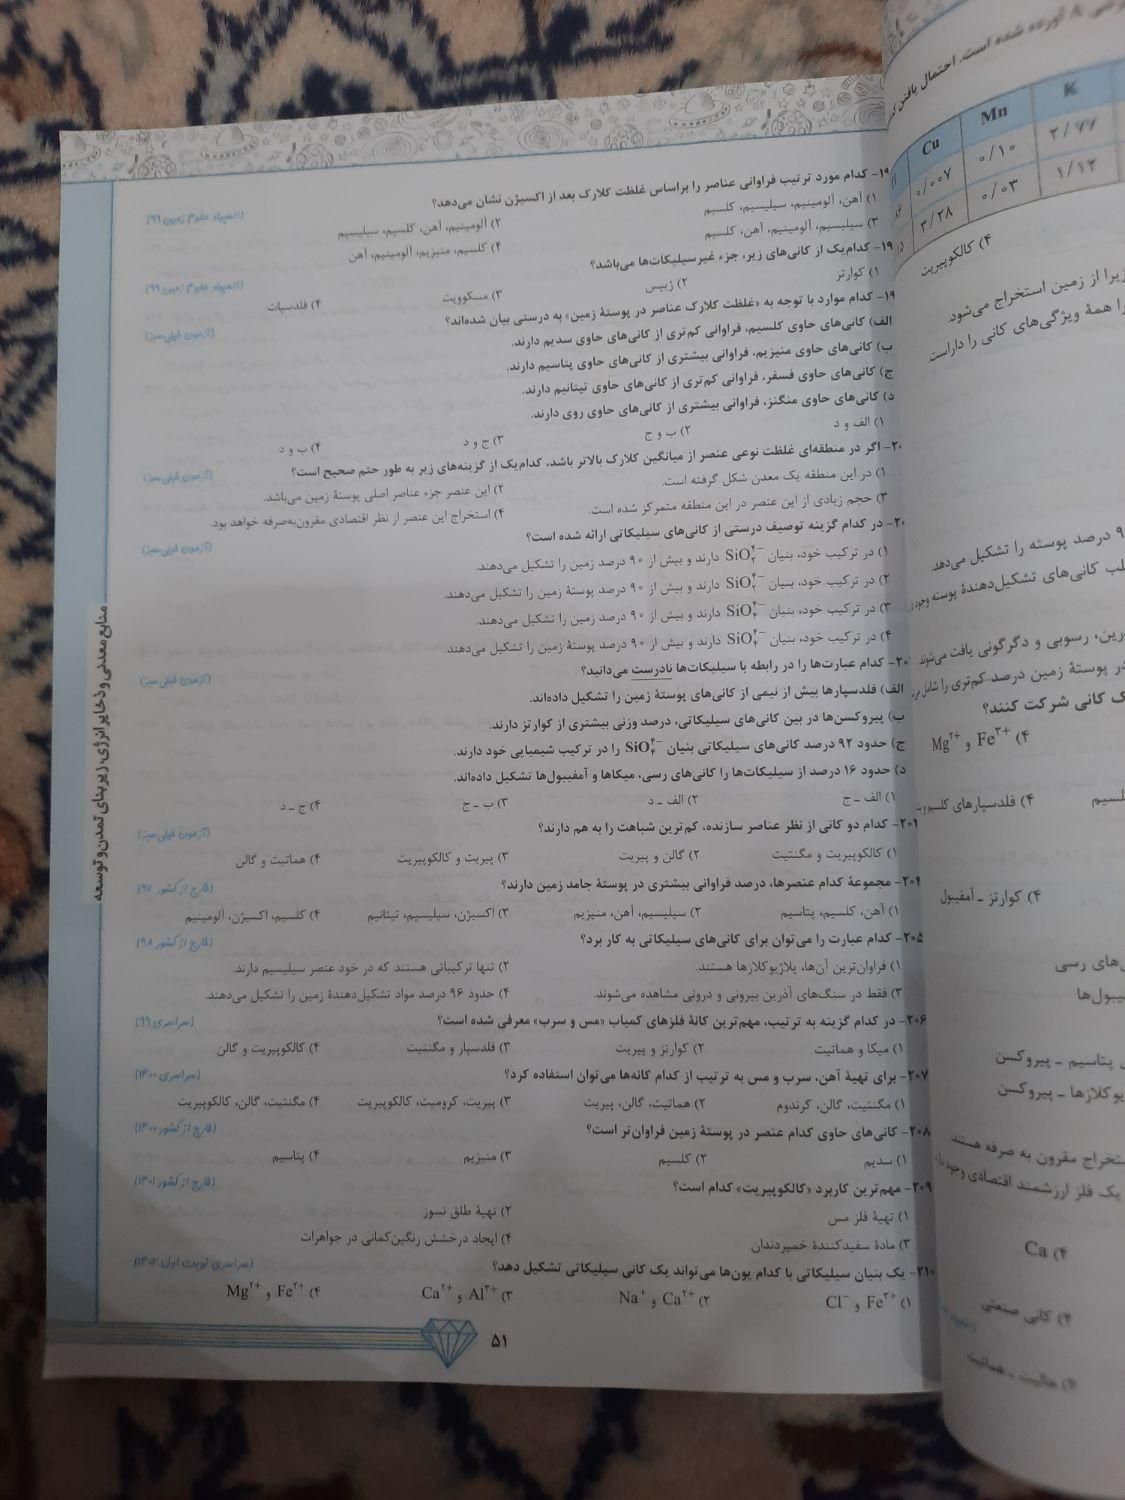 ۱۹- کدام مورد ترتیب فراوانی عناصر را براساس غلظت کلارک بعد از اکسیژن نشان می‌دهد؟
(المپیاد علوم زمین ۹۹)
۱) آهن، آلومینیم، سیلیسیم، کلسیم
۲) آلومینیم، آهن، کلسیم، سیلیسیم
۳) سیلیسیم، آلومینیم، آهن، کلسیم
۴) کلسیم، منیزیم، آلومینیم، آهن
۱۹- کدام‌یک از کانی‌های زیر، جزء غیرسیلیکات‌ها می‌باشد؟
(المپیاد علوم زمین ۹۹)
۱) کوارتز ۲) ژیپس ۳) مسکوویت ۴) فلدسپات
۱۹- کدام موارد با توجه به «غلظت کلارک عناصر در پوستهٔ زمین» به درستی بیان شده‌اند؟
(آزمون فیلی سبز)
الف) کانی‌های حاوی کلسیم، فراوانی کم‌تری از کانی‌های حاوی سدیم دارند.
ب) کانی‌های حاوی منیزیم، فراوانی بیشتری از کانی‌های حاوی پتاسیم دارند.
ج) کانی‌های حاوی فسفر، فراوانی کم‌تری از کانی‌های حاوی تیتانیم دارند.
د) کانی‌های حاوی منگنز، فراوانی بیشتری از کانی‌های حاوی روی دارند.
۱) الف و د ۲) ب و ج ۳) ج و د ۴) ب و د
۲۰- اگر در منطقه‌ای غلظت نوعی عنصر از میانگین کلارک بالاتر باشد، کدام‌یک از گزینه‌های زیر به طور حتم صحیح است؟
(آزمون فیلی سبز)
۱) در این منطقه یک معدن شکل گرفته است.
۲) این عنصر جزء عناصر اصلی پوستهٔ زمین می‌باشد.
۳) حجم زیادی از این عنصر در این منطقه متمرکز شده است.
۴) استخراج این عنصر از نظر اقتصادی مقرون‌به‌صرفه خواهد بود.
۲۰- در کدام گزینه توصیف درستی از کانی‌های سیلیکاتی ارائه شده است؟
(آزمون فیلی سبز)
۱) در ترکیب خود، بنیان SiO₂⁴⁻ دارند و بیش از ۹۰ درصد زمین را تشکیل می‌دهند.
۲) در ترکیب خود، بنیان SiO₂⁴⁻ دارند و بیش از ۹۰ درصد پوستهٔ زمین را تشکیل می‌دهند.
۳) در ترکیب خود، بنیان SiO₄⁴⁻ دارند و بیش از ۹۰ درصد زمین را تشکیل می‌دهند.
۴) در ترکیب خود، بنیان SiO₄⁴⁻ دارند و بیش از ۹۰ درصد پوستهٔ زمین را تشکیل می‌دهند.
۲۰- کدام عبارت‌ها را در رابطه با سیلیکات‌ها نادرست می‌دانید؟
(آزمون فیلی سبز)
الف) فلدسپارها بیش از نیمی از کانی‌های پوستهٔ زمین را تشکیل داده‌اند.
ب) پیروکسن‌ها در بین کانی‌های سیلیکاتی، درصد وزنی بیشتری از کوارتز دارند.
ج) حدود ۹۲ درصد کانی‌های سیلیکاتی بنیان SiO₄⁴⁻ را در ترکیب شیمیایی خود دارند.
د) حدود ۱۶ درصد از سیلیکات‌ها را کانی‌های رسی، میکاها و آمفیبول‌ها تشکیل داده‌اند.
۱) الف ـ ج ۲) الف ـ د ۳) ب ـ ج ۴) ج ـ د
۲۰۳- کدام دو کانی از نظر عناصر سازنده، کم‌ترین شباهت را به هم دارند؟
(آزمون فیلی سبز)
۱) کالکوپیریت و مگنتیت ۲) گالن و پیریت ۳) پیریت و کالکوپیریت ۴) هماتیت و گالن
۲۰۴- مجموعهٔ کدام عنصرها، درصد فراوانی بیشتری در پوستهٔ جامد زمین دارند؟
(خارج از کشور ۹۷)
۱) آهن، کلسیم، پتاسیم ۲) سیلیسیم، آهن، منیزیم ۳) اکسیژن، سیلیسیم، تیتانیم ۴) کلسیم، اکسیژن، آلومینیم
۲۰۵- کدام عبارت را می‌توان برای کانی‌های سیلیکاتی به کار برد؟
(خارج از کشور ۹۸)
۱) فراوان‌ترین آن‌ها، پلاژیوکلازها هستند.
۲) تنها ترکیباتی هستند که در خود عنصر سیلیسیم دارند.
۳) فقط در سنگ‌های آذرین بیرونی و درونی مشاهده می‌شوند.
۴) حدود ۹۶ درصد مواد تشکیل‌دهندهٔ زمین را تشکیل می‌دهند.
۲۰۶- در کدام گزینه به ترتیب، مهم‌ترین کانهٔ فلزهای کمیاب «مس و سرب» معرفی شده است؟
(سراسری ۹۹)
۱) میکا و هماتیت ۲) کوارتز و پیریت ۳) فلدسپار و مگنتیت ۴) کالکوپیریت و گالن
۲۰۷- برای تهیهٔ آهن، سرب و مس به ترتیب از کدام کانه‌ها می‌توان استفاده کرد؟
(سراسری ۱۴۰۰)
۱) مگنتیت، گالن، کرندوم ۲) هماتیت، گالن، پیریت ۳) پیریت، کرومیت، کالکوپیریت ۴) مگنتیت، گالن، کالکوپیریت
۲۰۸- کانی‌های حاوی کدام عنصر در پوستهٔ زمین فراوان‌تر است؟
(خارج از کشور ۱۴۰۰)
۱) سدیم ۲) کلسیم ۳) منیزیم ۴) پتاسیم
۲۰۹- مهم‌ترین کاربرد «کالکوپیریت» کدام است؟
(خارج از کشور ۱۴۰۱)
۱) تهیهٔ فلز مس
۲) تهیهٔ طلق نسوز
۳) مادهٔ سفیدکنندهٔ خمیردندان
۴) ایجاد درخشش رنگین‌کمانی در جواهرات
۲۱۰- یک بنیان سیلیکاتی با کدام یون‌ها می‌تواند یک کانی سیلیکاتی تشکیل دهد؟
(سراسری نوبت اول ۱۴۰۲)
۱) Fe³⁺ و Cl⁻ ۲) Ca²⁺ و Na⁺ ۳) Al³⁺ و Ca²⁺ ۴) Fe²⁺ و Mg²⁺
۵۱
منابع معدنی و ذخایر انرژی، زیربنای تمدن و توسعه
آورده شده است. احتمال یافتن
Cu Mn K
۰/۰۰۷ ۰/۱۰ ۲/۷۷
۳/۲۸ ۰/۰۳ ۱/۱۲
۴) کالکوپیریت
زیرا از زمین استخراج می‌شود.
را همهٔ ویژگی‌های کانی را داراست.
درصد پوسته را تشکیل می‌دهد.
کانی‌های تشکیل‌دهندهٔ پوسته
رسوبی و دگرگونی یافت می‌شوند
در پوستهٔ زمین درصد کم‌تری را شامل
کانی شرکت کنند؟
۴) Fe³⁺ و Mg²⁺
۴) فلدسپارهای کلسیم
۴) کوارتز ـ آمفیبول
های رسی
پتاسیم ـ پیروکسن
ـ پیروکسن
استخراج مقرون به صرفه هستند
یک فلز ارزشمند اقتصادی وجود
۴) Ca
۴) کانی صنعتی
۴) هالیت ـ هماتیت